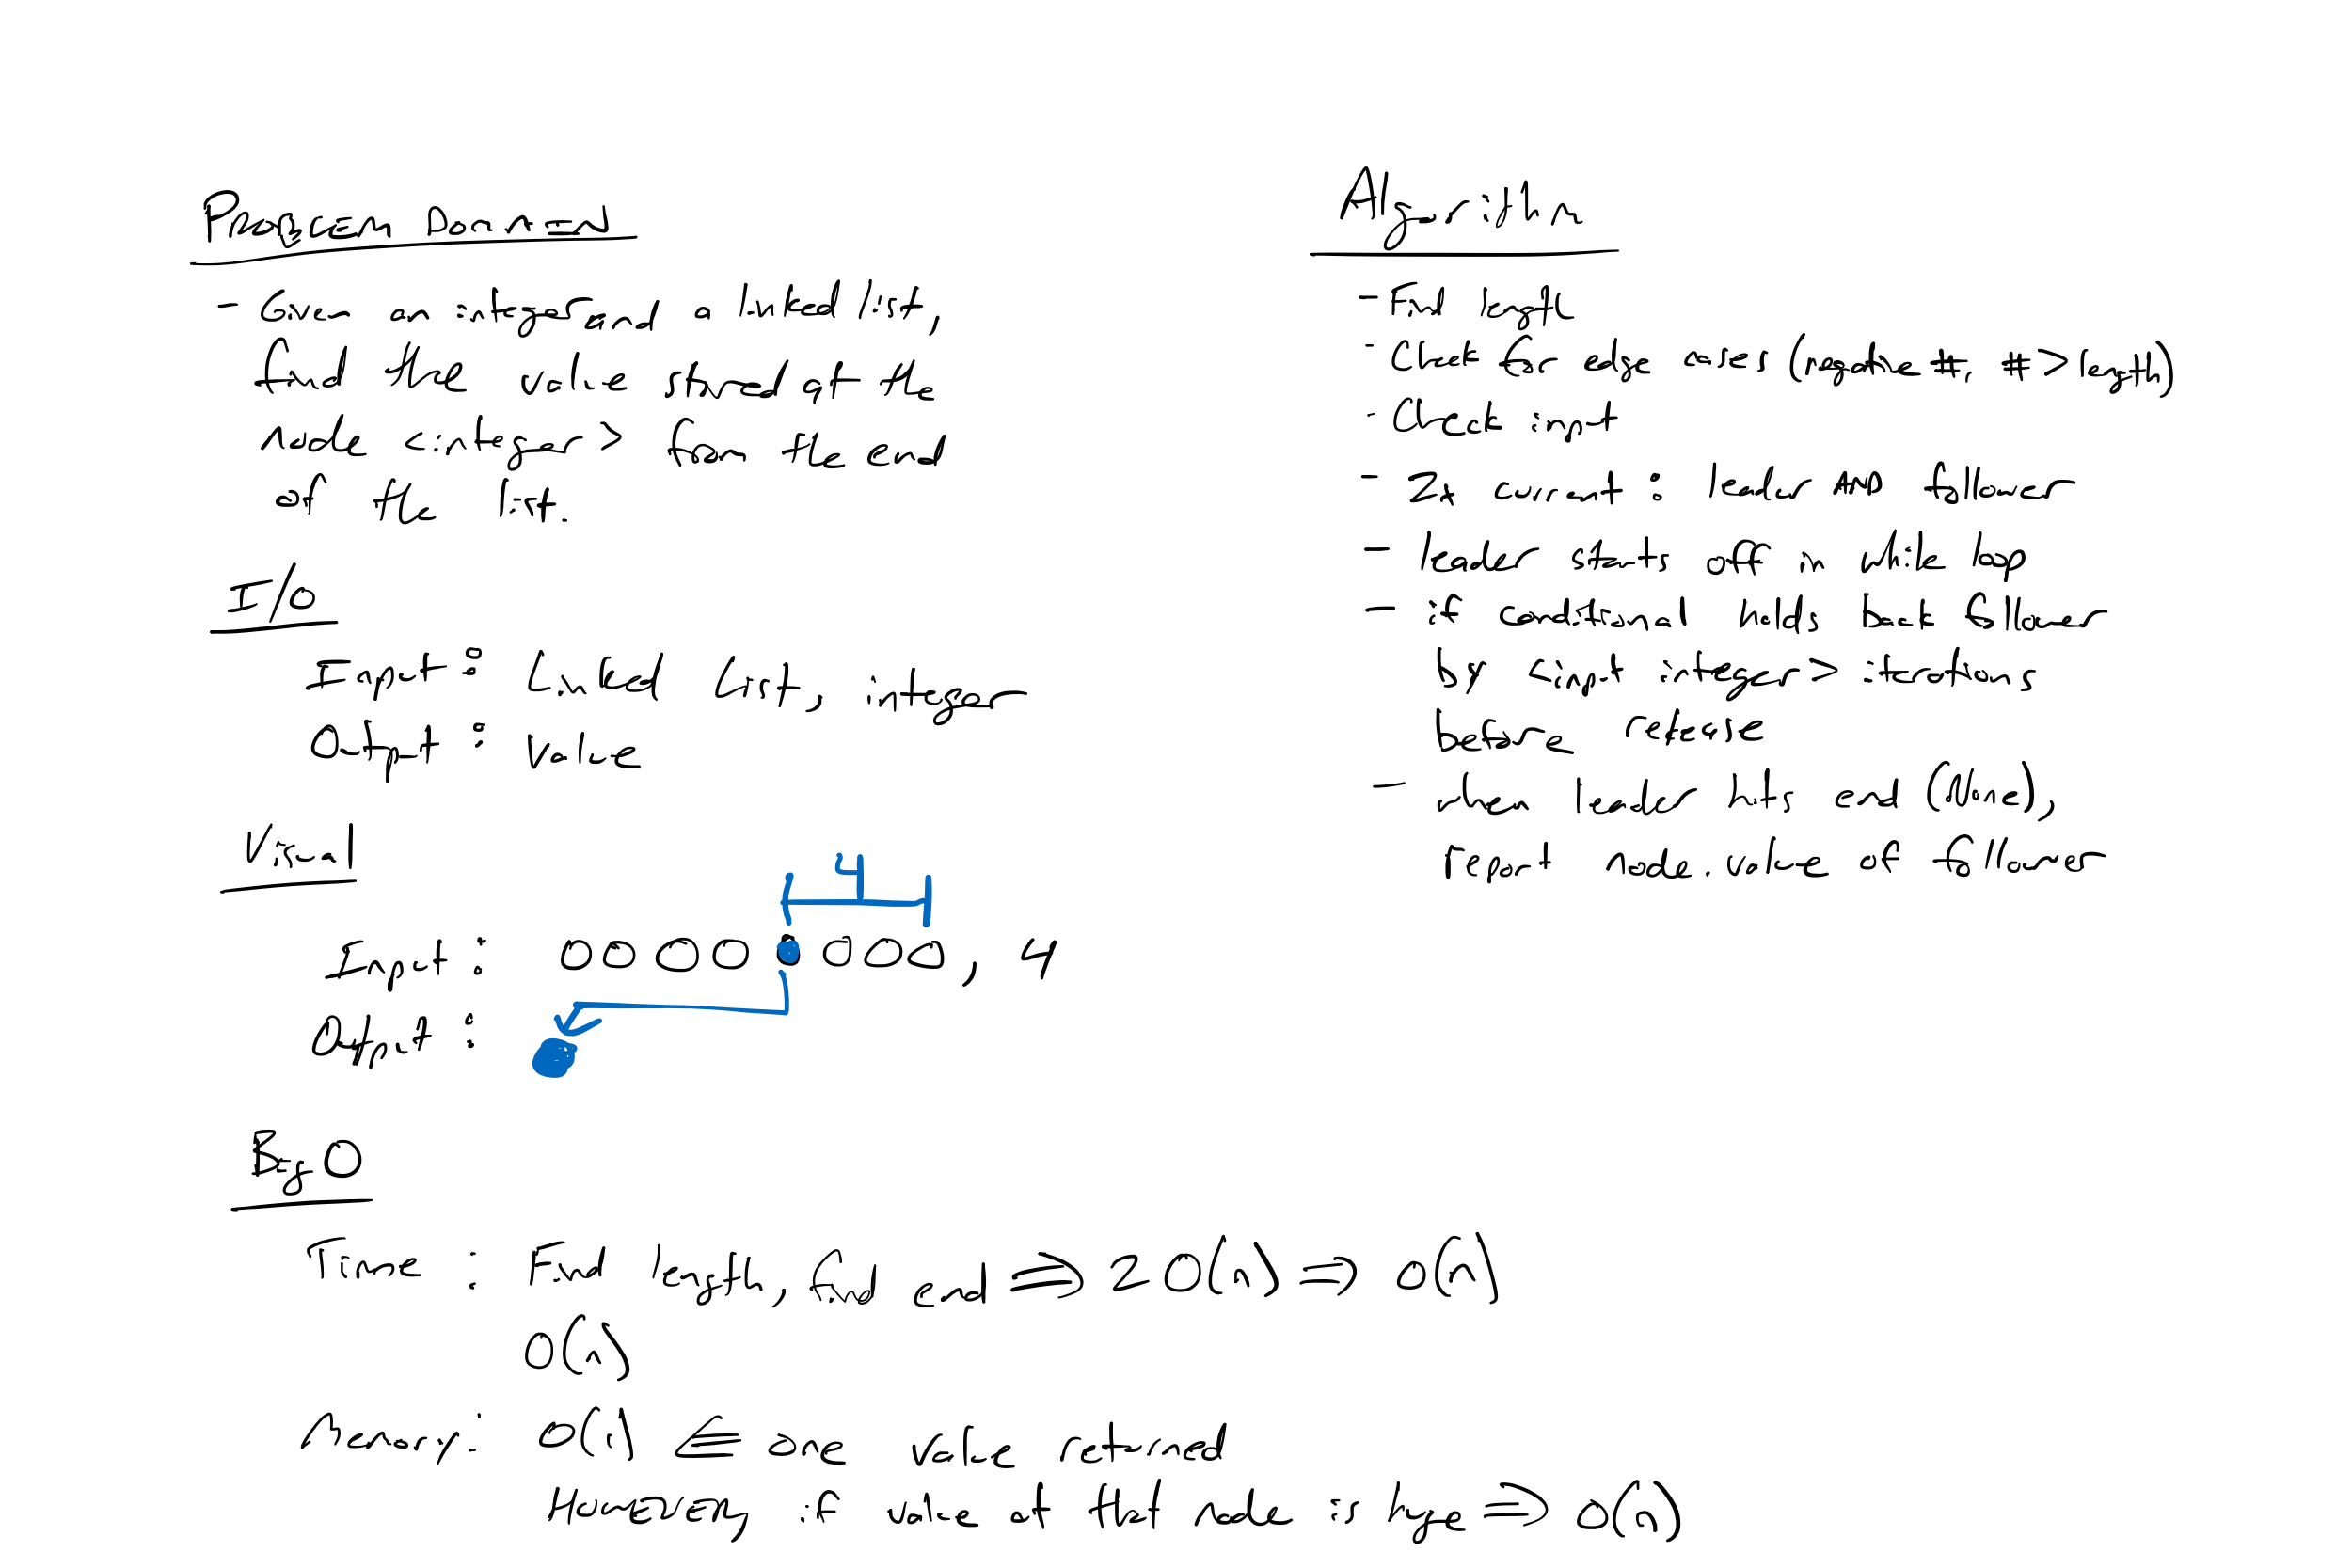 PROBLEM DOMAIN
- Given an integer and a linked list,
find the value stored at the
node <integer> from the end
of the list.
I/O
Input: Linked List, integer
Output: Value
Visual
4
Input: OOOOOOOO, 4
Output:
Big O
Time: Find length, find end => 2 O(n) => O(n)
O(n)
Memory: O(1) <= one value returned
HOWEVER, if value at that node is huge => O(n)
Algorithm
- Find length
- Check for edge cases (negative #, # > length)
- Check input
- 2x current: leader AND follower
- leader starts off in while loop
- if conditional holds back follower
by <input integer> iterations
before release
- when leader hits end (None),
report node.value of follower